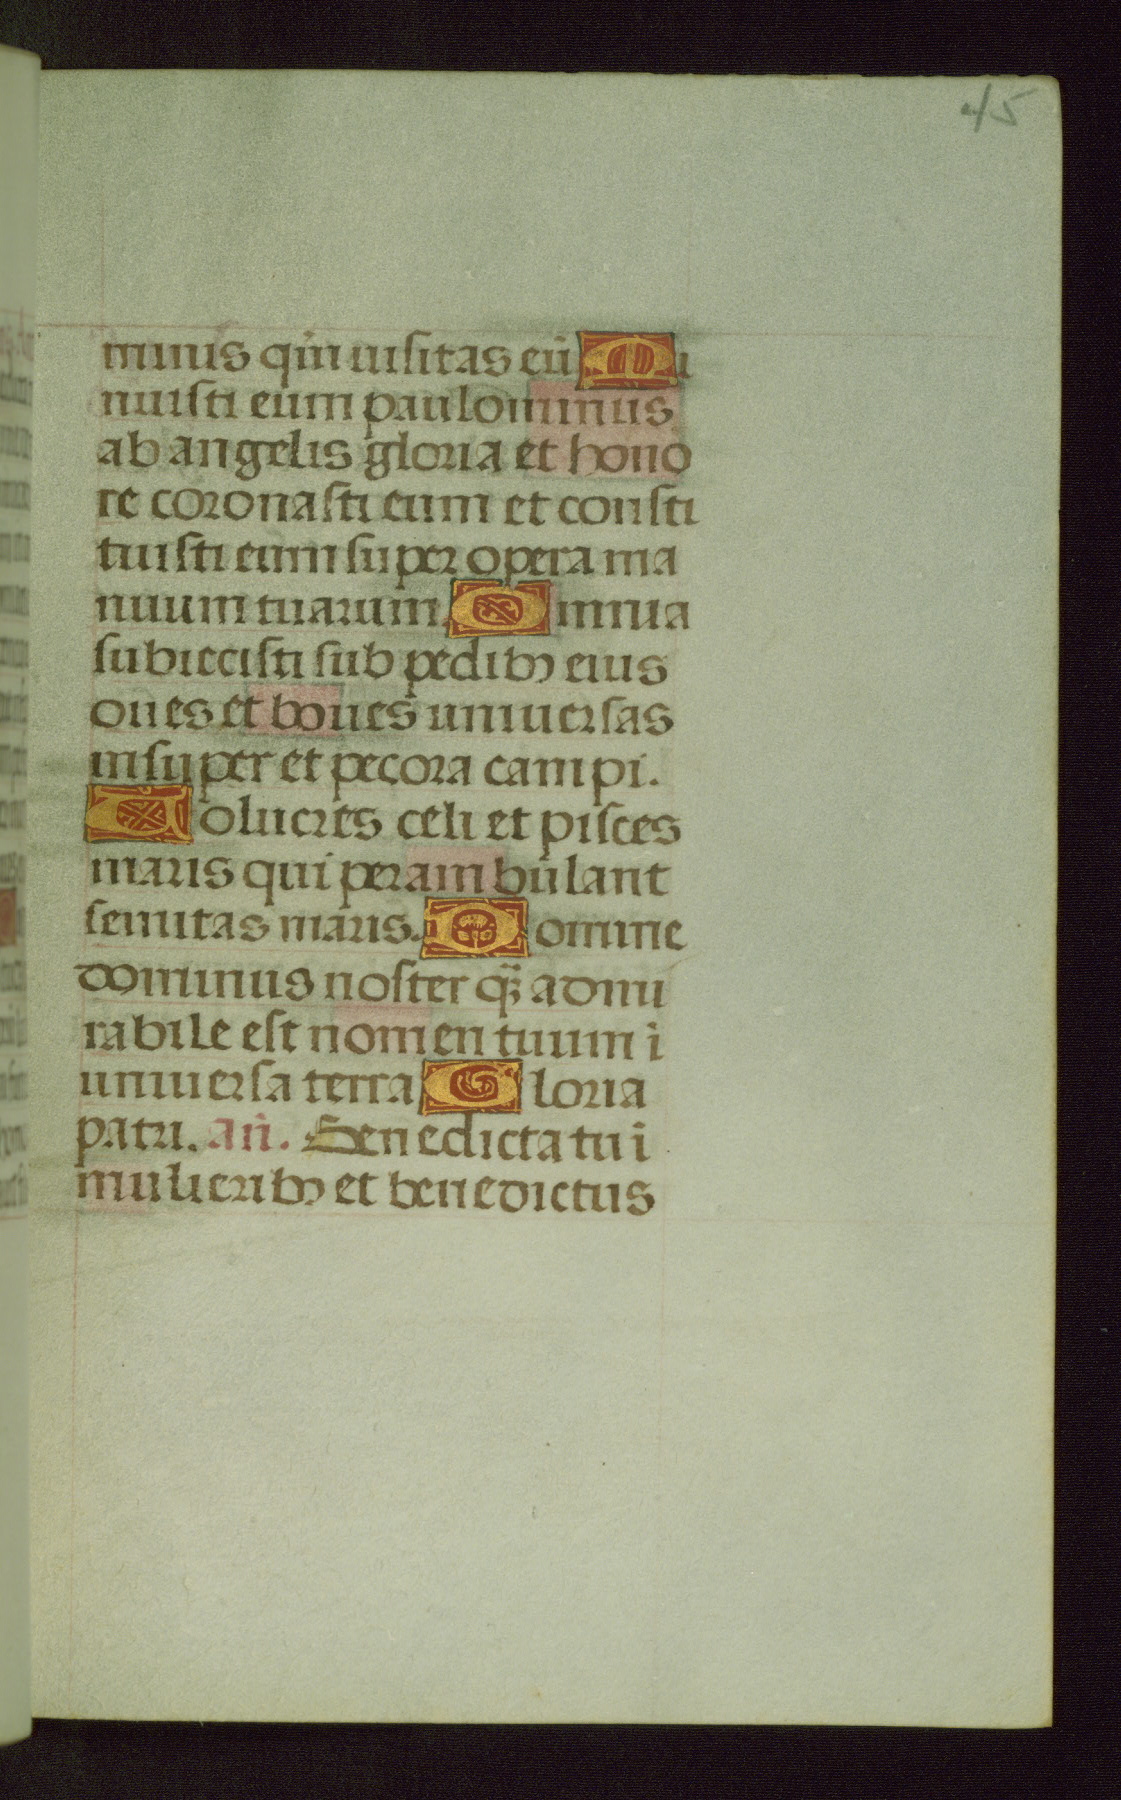 45
minis qm̄ uisitas eū Mi
nuisti eum paulominus
ab angelis gloria et hono
re coronasti eum et consti
tuisti eum super opera ma
nuum tuarum. Omnia
subiecisti sub pedibꝫ eius
oues et boues uniuersas
insuper et pecora campi.
Uolucres celi et pisces
maris qui perambulant
semitas maris. Domine
dominus noster qꝫ admi
rabile est nomen tuum ī
uniuersa terra Gloria
patri. an̄. Benedicta tu ī
mulieribꝫ et benedictus